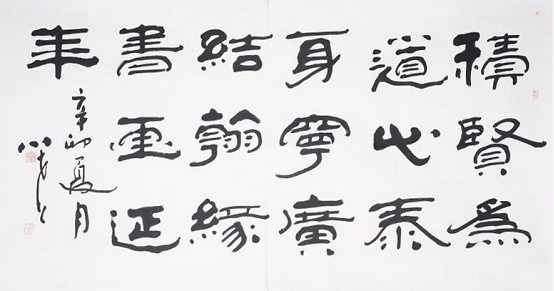 積賢爲
道心泰
身寧廣
結翰緣
書畫延
年
辛卯夏月